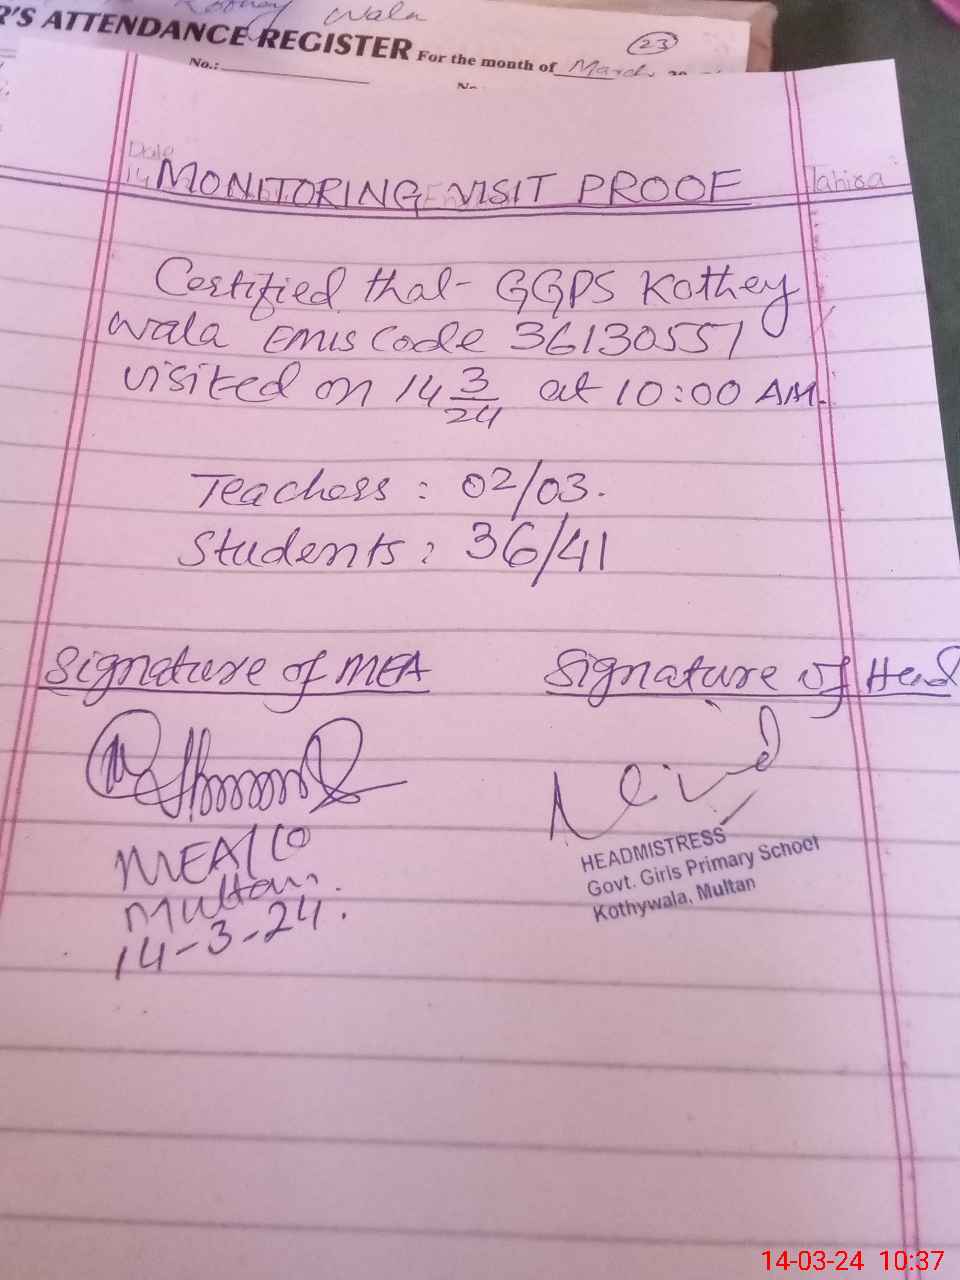 Kothey Wala
R'S ATTENDANCE REGISTER For the month of March 20
23
No.:
Date
14
Tahira
MONITORING VISIT PROOF
Certified that GGPS Kothey
Wala EMIS Code 36130551
visited on 14 3/24 at 10:00 AM.
Teachers : 02/03.
Students : 36/41
Signature of MEA
Signature of Head
MEA/CO
Multan.
14-3-24.
HEADMISTRESS
Govt. Girls Primary School
Kothywala, Multan
14-03-24 10:37